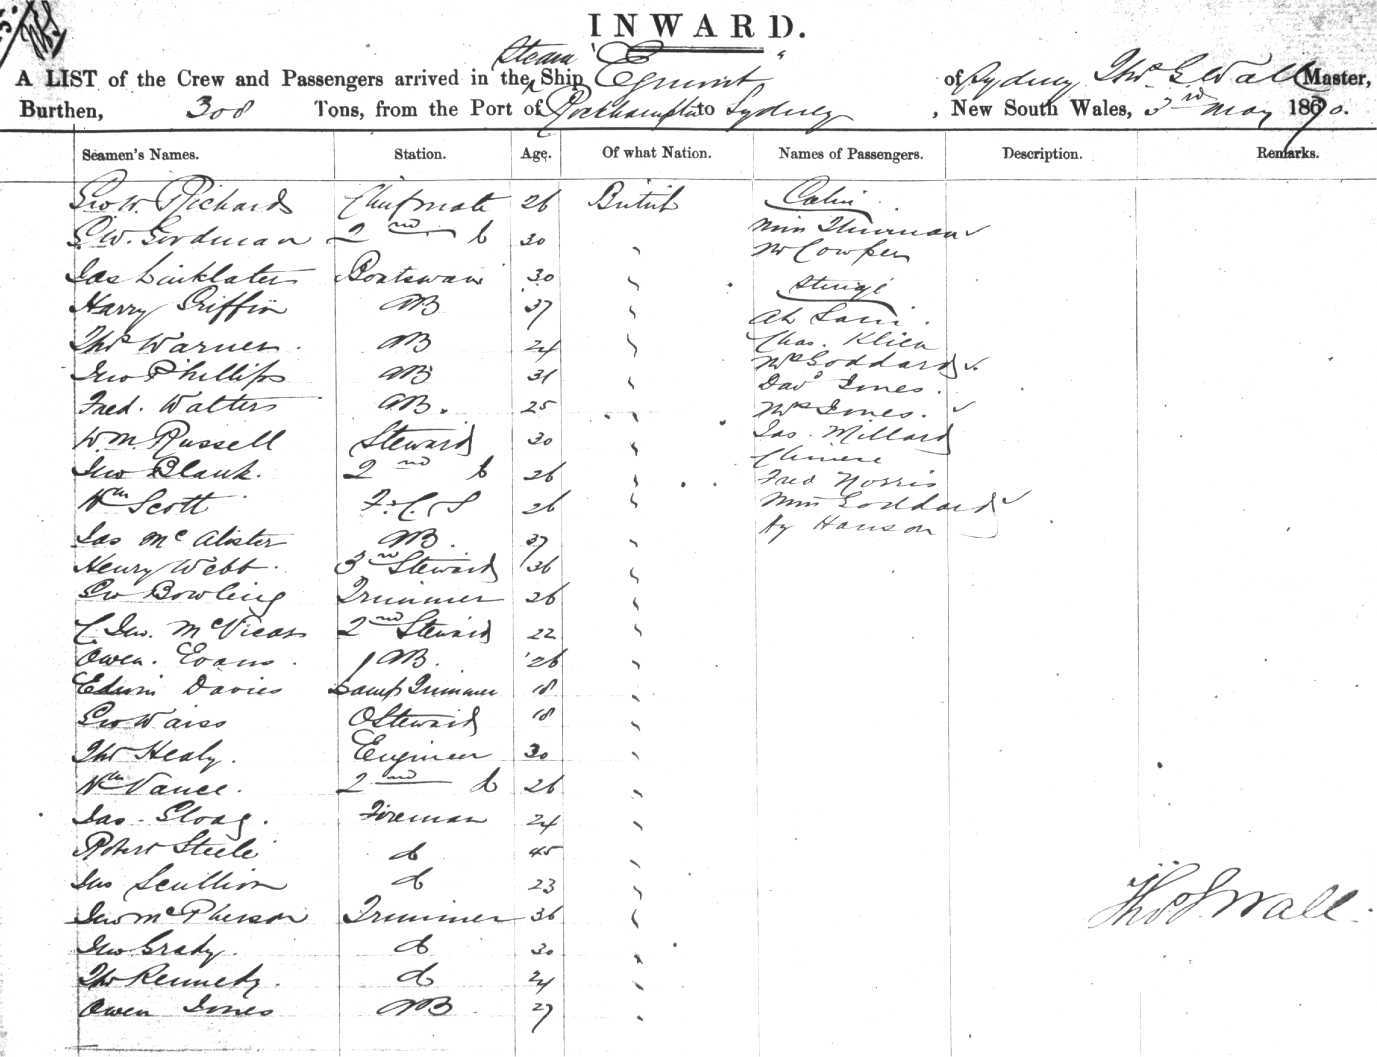 INWARD.
A LIST of the Crew and Passengers arrived in the Steam Ship "Egmont" of Sydney Thos. G. Wall Master,
Burthen, 308 Tons, from the Port of Rockhampton to Sydney, New South Wales, 3rd May 1870.
Seamen's Names. Station. Age. Of what Nation. Names of Passengers. Description. Remarks.
Geo W. Richards Chief mate 26 British Cabin
G. W. Gordman 2nd Do 30 " Miss Thurman ✓
Mr Cowper
Jas Linklater Boatswain 30 " Steerage
Harry Griffin AB 37 " Ah
Thos Warner AB 24 " Chas. Klien
Jno Phillips AB 31 " Mrs Goddard ✓
Davd Jones.
Fred. Walters AB. 25 " Mrs Jones. ✓
Wm Russell Steward 30 " Jas. Millard
Chinese
Jno Blank. 2nd Do 26 " Fred Norris
Wm Scott F. C. S 26 " Miss Goddard ✓
Hy Hanson
Jas McAlister AB. 37 "
Henry Webb. 3rd Steward 36 "
Geo Bowling Trimmer 26 "
C. Jno. McVicars 2nd Steward 22 "
Owen. Evans. AB. 26 "
Edwin Davies Lamp Trimmer 18 "
Geo Waiss O Steward 18 "
Thos Healy. Engineer 30 "
Wm Vance. 2nd do 26 "
Jas. Gloag. Fireman 24 "
Robert Steele do 45 "
Jno Scullion do 23 "
Jno McPherson Trimmer 36 "
Jno Grady. do 30 "
Thos Kennedy. do 24 "
Owen Jones AB 27 "
Thos G Wall.